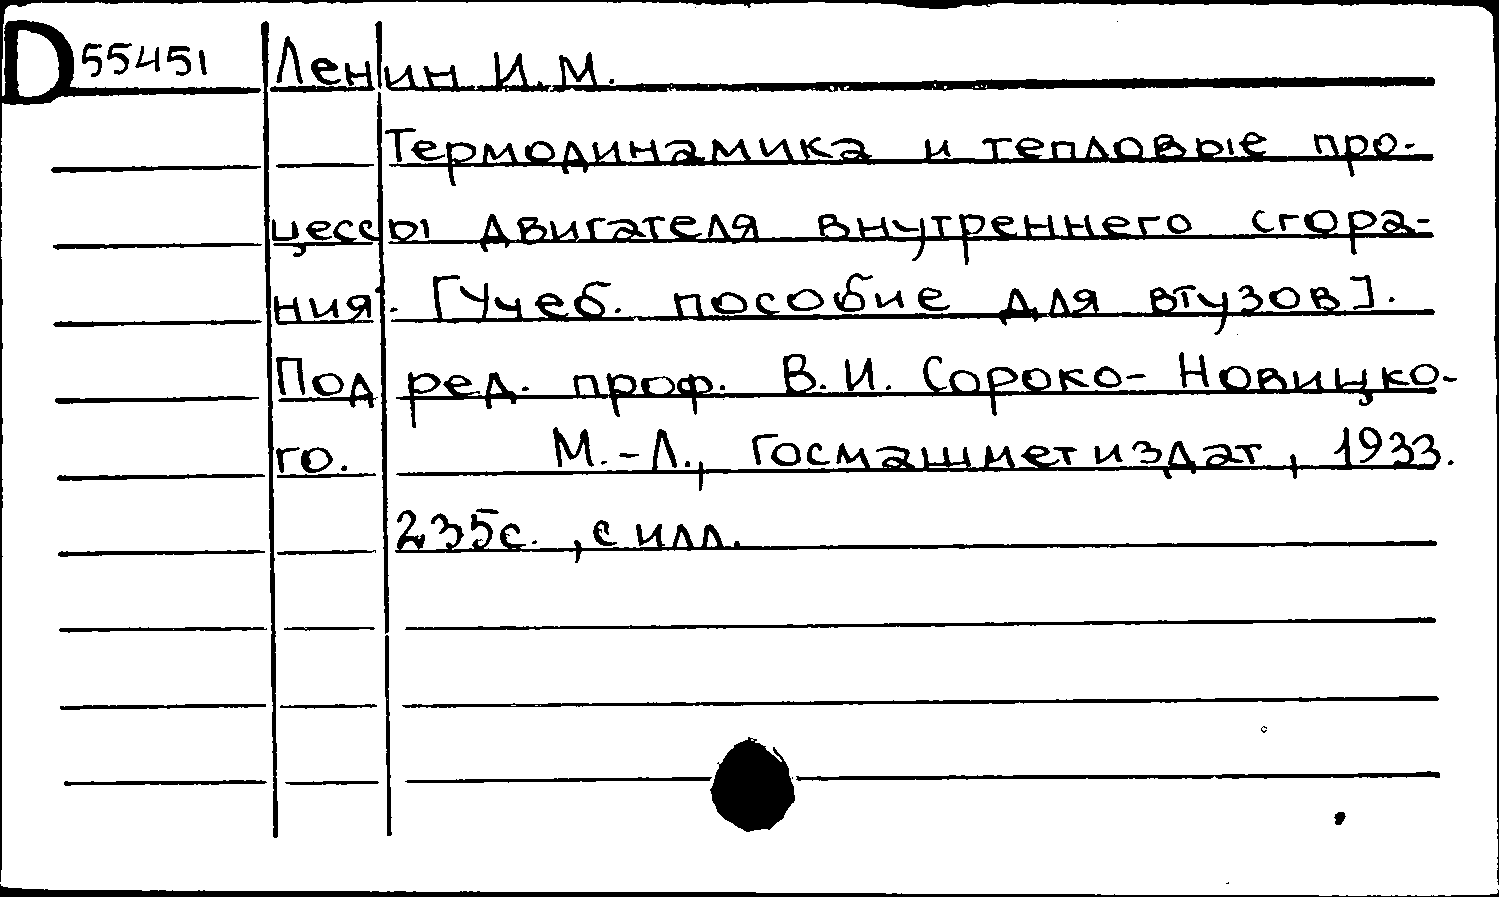 D55451 Ленин И.М.
Термодинамика и тепловые про-
цессы двигателя внутреннего сгора-
ния. [Учеб. пособие для втузов].
Под ред. проф. В.И. Сороко-Новицко-
го. М.-Л., Госмашметиздат, 1933.
235с., с илл.